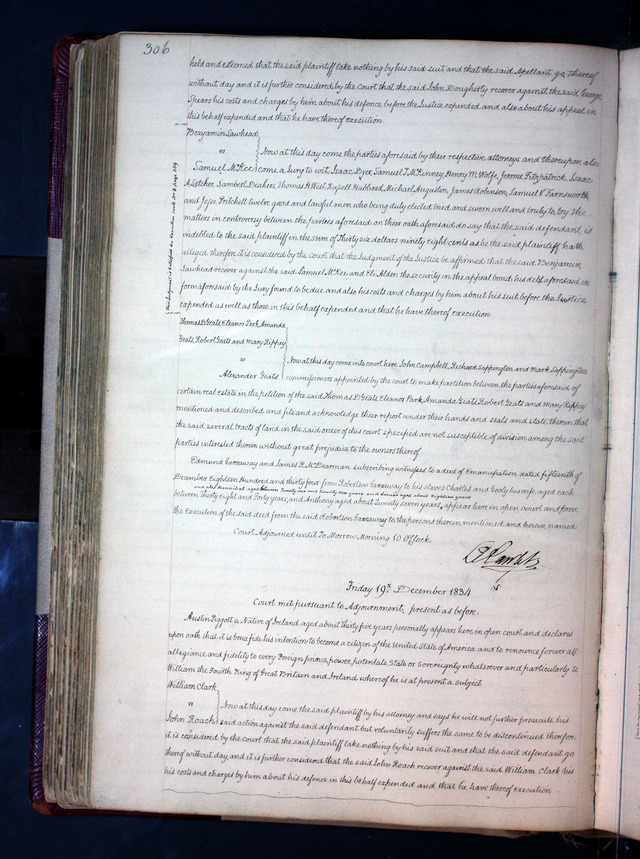 306
held and esteemed that the said plaintiff take nothing by his said suit and that the said Apellant go thereof
without day and it is further considered by the Court that the said John Dougherty recover against the said George
Spears his costs and charges by him about his defence before the Justice expended and also about his appeal in
this behalf expended and that he have thereof execution
Benjamin Lawhead
vs
Now at this day come the parties aforesaid by their respective attorneys and thereupon also
Samuel McKee come a Jury to wit, Isaac Dyer, Samuel T McKinney, Henry M Wolfe, Jerome Fitzpatrick, Isaac
A Letcher, Sambert Deakers, Thomas H West, Russell Hubbard, Michael Huguston, James Robinson, Samuel V Farnsworth
and Jesse Pritchell twelve good and lawful men who being duly elected tried and sworn well and truly to try the
matters in controversy between the parties aforesaid on their oath aforesaid do say that the said defendant is
indebted to the said plaintiff in the sum of Thirty six dollars ninety eight cents as he the said plaintiff hath
alleged therefore it is considered by the Court that the Judgment of the Justice be affirmed that the said Benjamin
Lawhead recover against the said Samuel McKee and Eli Alden the security in the appeal bond his debt aforesaid in
form aforesaid by the Jury found to be due and also his costs and charges by him about his suit before the Justice
expended as well as those in this behalf expended and that he have thereof execution
This Judgment is satisfied
Thomas D Geats Eleanor Park Amanda
Geats, Robert Geats and Mary Rippey
vs
Now at this day come into court here John Campbell, Richard Sappington and Mark Sappington
Alexander Geats commissioners appointed by the court to make partition between the parties aforesaid of
certain real estate in the petition of the said Thomas D Geats Eleanor Park Amanda Geats Robert Geats and Mary Rippey
mentioned and described and file and acknowledge their report under their hands and seals and state therein that
the said several tracts of land in the said order of this court specified are not susceptible of division among the said
parties interested therein without great prejudice to the owners thereof
Edmund Carraway and James R McDearman subscribing witnesses to a deed of Emancipation dated fifteenth of
December Eighteen Hundred and thirty four from Robertson Carraway to his slaves Charles and his wife aged each
and also Hannibal aged between twenty one and twenty two years and Louisa aged about eighteen years
between thirty eight and Forty years, and Anthony aged about Twenty seven years, appear here in open court and prove
the Execution of the said deed from the said Robertson Carraway to the persons therein mentioned and herein named
Court Adjourned until To Morrow Morning 10 O'Clock
Friday 19th December 1834
Court met pursuant to Adjournment, present as before.
Austin Piggott a Native of Ireland, aged about thirty five years personally appears here in open court and declares
upon oath that it is bona fide his intention to become a citizen of the United State of America and to renounce forever all
allegiance and fidelity to every Foreign prince, power, potentate, State or Sovereignty whatsoever and particularly to
William the Fourth King of Great Britain and Ireland whereof he is at present a subject
William Clark
vs
Now at this day come the said plaintiff by his attorney and says he will not further prosecute his
John Roach said action against the said defendant but voluntarily suffers the same to be discontinued therefore
it is considered by the court that the said plaintiff take nothing by his said suit and that the said defendant go
thereof without day, and it is further considered that the said John Roach recover against the said William Clark his
his costs and charges by him about his defence in this behalf expended and that he have thereof execution